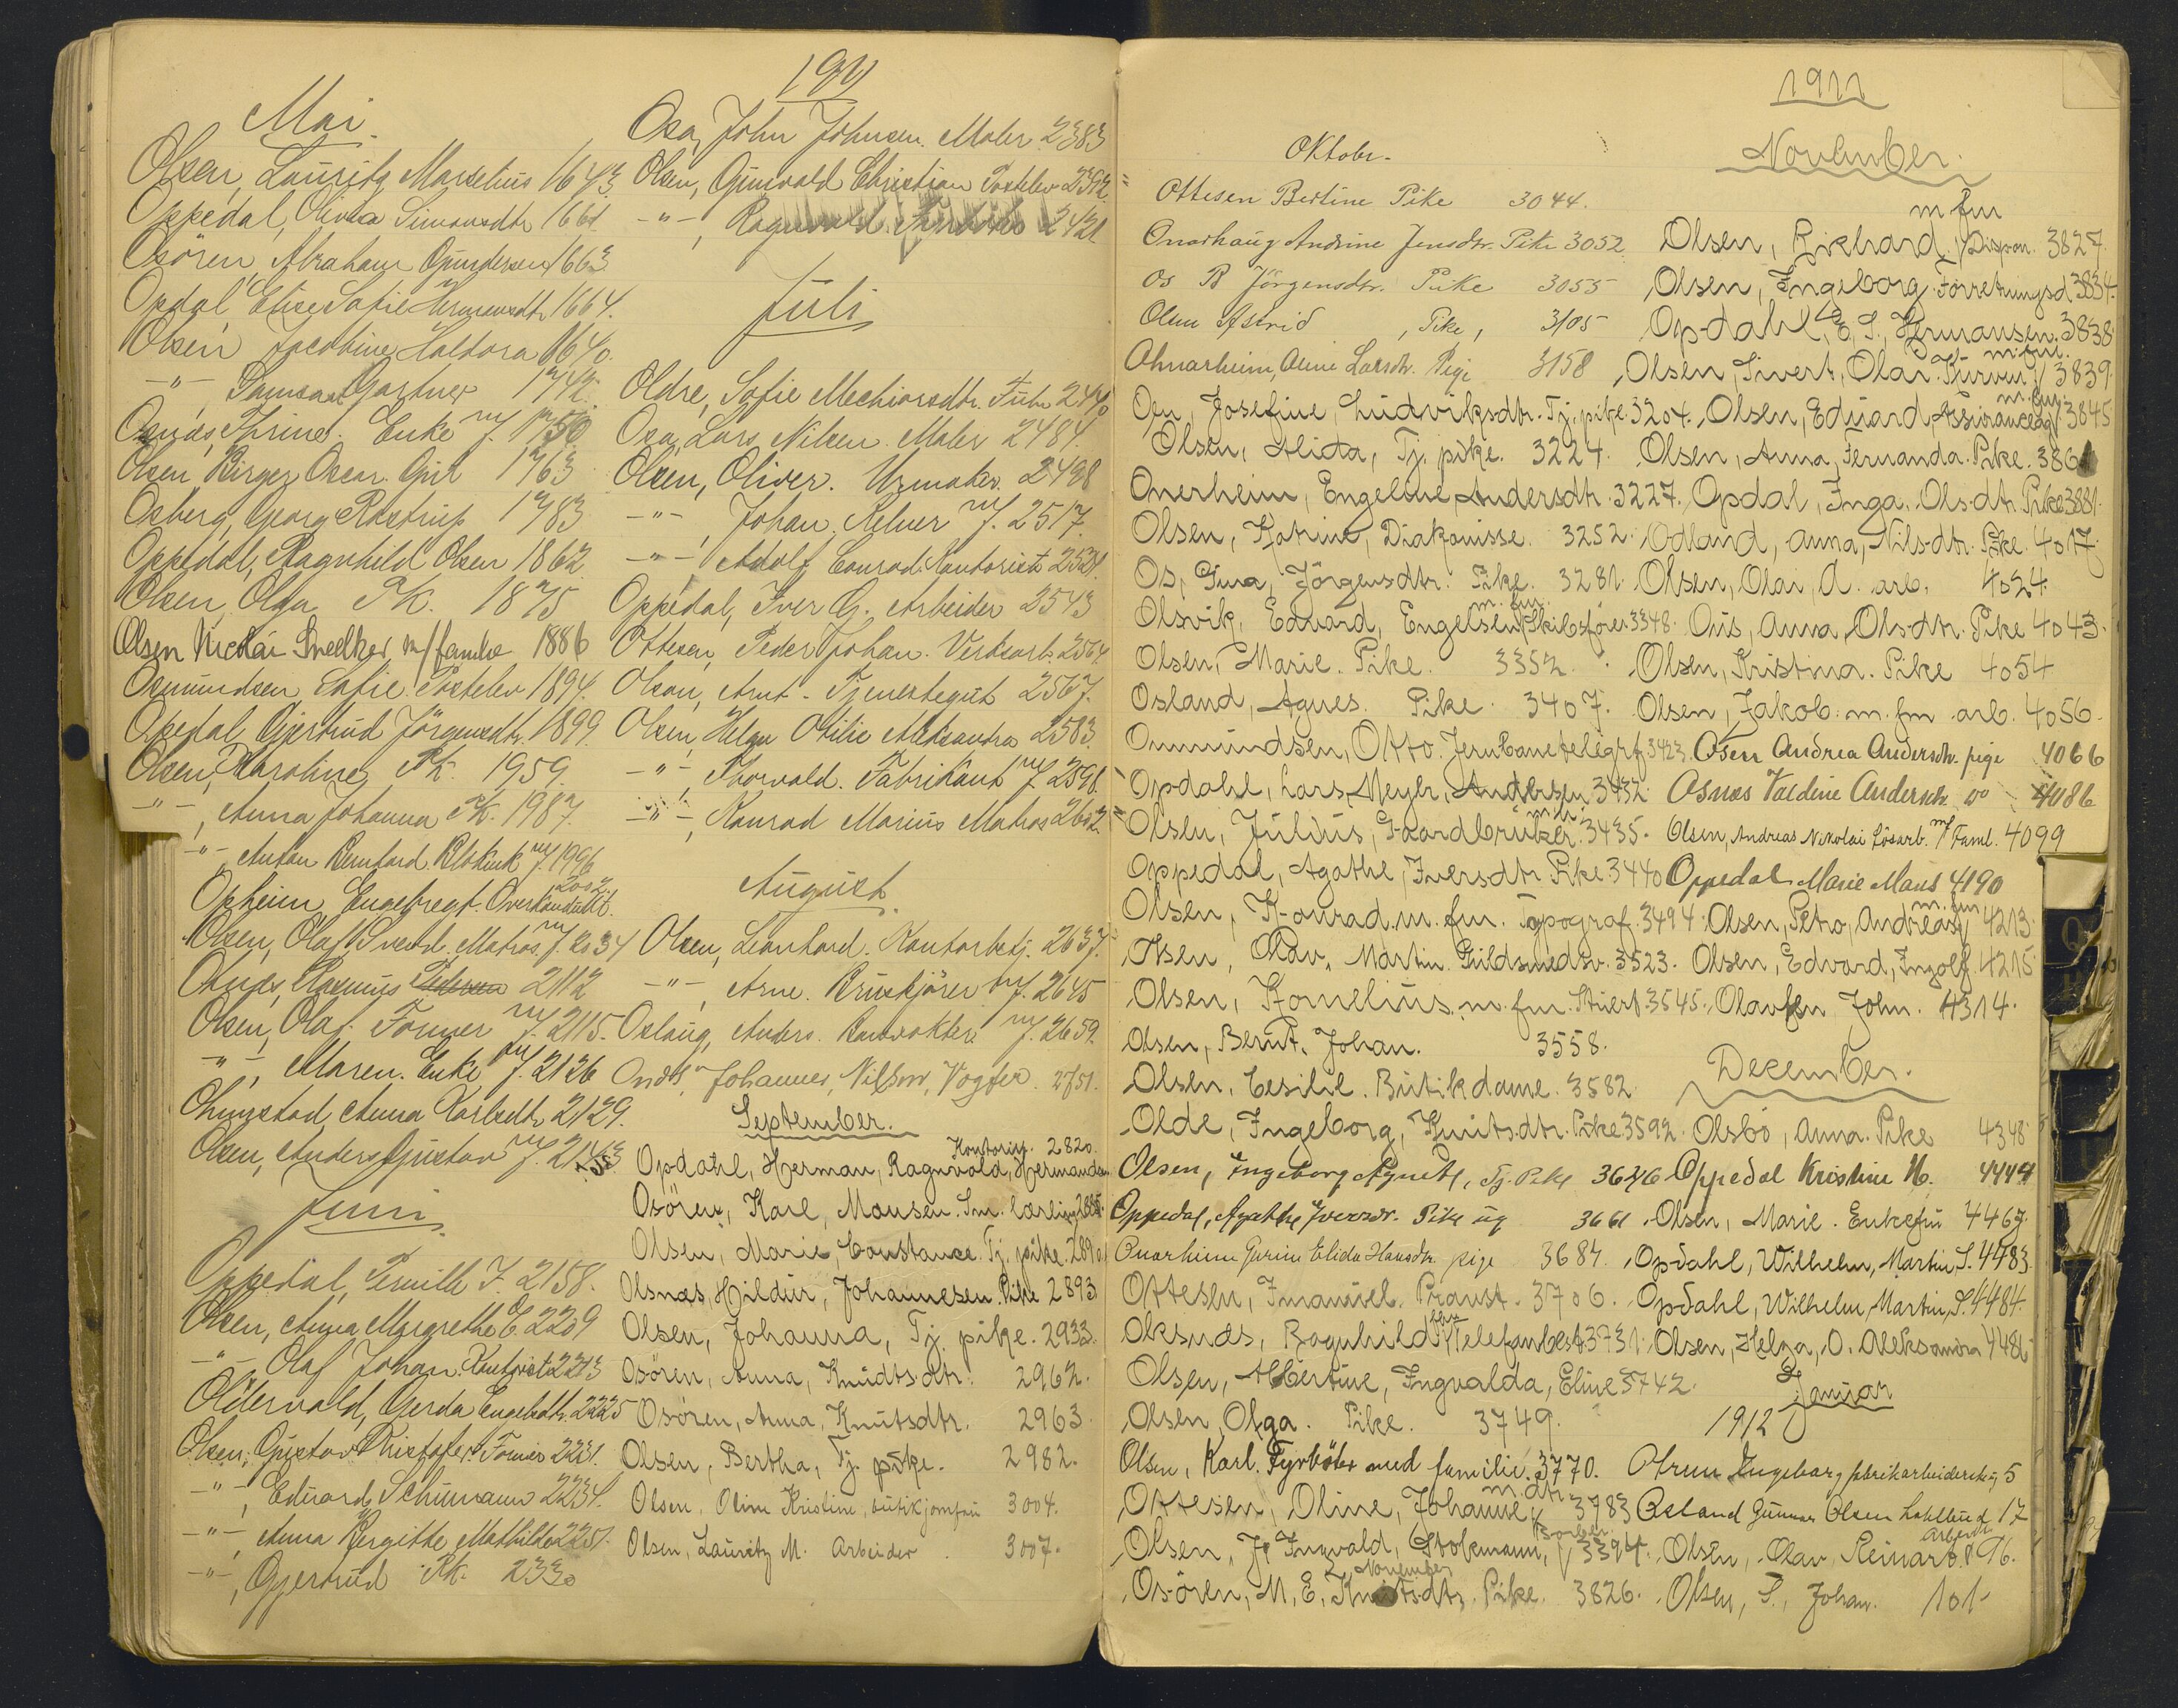 1911
Mai.
Olsen, Lauritz Marselius 1643
Oppedal, Olivia Simonsdtr 1661.
Osören, Abraham Gundersen 1663
Opdal Elise Sofie Hermansdtr 1664.
Olsen Jacobine Haldora 1640.
-"- Gartner 1742.
Osnæs, Thrine. Enke m/f. 1756
Olsen Birger Oscar. Gut 1763
Osberg, Georg Rostrup 1783
Oppedal, Ragnhild Olsen 1862
Olsen, Olga PK. 1875
Olsen Nicolai Snedker m/familie 1886
Osmundsen Sofie. Postelev 1894.
Opedal Gjertrud Jörgensdtr. 1899
Olsen, Karoline PK. 1959.
-"-, Anna Johanna PK. 1987.
-"- Anton Bernhard. m/f. 1996
Opheim Engebregt. Overkondukt. 2002
Olsen, Olaf Svend. Matros m/f. 2034
Rasmus Pedersen 2112
Olsen, Olaf. Former m/f. 2115.
-"-, Maren. Enke m/f. 2126
Anna Karlsdtr. 2129.
Olsen, Anders Gustav m/f. 2143
Juni
Oppedal, Pernille F. 2158.
Olsen, Anna Margrethe E. 2209
-"- Olaf Johan. Kontorist 2213
Oldervald, Gerda Engelsdtr. 2225
Olsen, Gustav Kristofer. Former 2231.
-"-, Eduard Schumann 2234.
-"-, Anna Bergitte Mathilde 2251.
-"-, Gjertrud Pk. 2330
Osa, John Johnsen. Maler 2383
Olsen, Gunvald Christian Postelev 2392
-"-, Ragnvald 2421
Juli
Oldre, Sofie Mechiorsdtr. 2440
Osa, Lars Nilsen. Maler 2484.
Olsen, Oliver. Urmaker. 2498
-"-, Johan. Kelner m/f. 2517.
-"- Adolf Conrad. Kontorist 2534.
Oppedal, Iver G. Arbeider 2543
Ottesen, Peder Johan. Verksarb. 2564
Olsen, Arnt - Tjenestegut 2567.
Olsen, Helga Otilie Aleksandra 2583.
-"-, Thorvald. Fabrikant m/f 2598.
-"-, Konrad Marius Matros 2602.
August
Olsen, Leonhard. Kontorbetj. 2637.
-"-, Arne. Kruskjörer m/f. 2645
Oslaug, Anders. m/f. 2659.
Johannes, Nilsen, Vogter. 2751.
September.
Kontorist. 2820.
Opdahl, Herman, Ragnvald, Hermansen
Osören, Karl, Monsen. Sm. lærling 2885.
Olsen, Marie, Constance. Tj. pike. 2890
Olsnes, Hildur, Johannesen. Pike 2893
Olsen, Johanna, Tj. pike. 2933.
Osören, Anna, Knudts.dtr. 2962.
Osören, Anna, Knutsdtr. 2963.
Olsen, Bertha, Tj. pike. 2982.
Olsen, Oline Kristine, butikjomfru 3004.
Olsen, Lauritz M. Arbeider 3007.
1911
Oktobr.
Ottesen Bertine Pike 3044.
Onarhaug Andrine Jensdtr. Pike 3052
Os B Jörgensdtr. Pike 3055
Olsen Astrid, Pike, 3105
Ohnarheim, Aline Larsdtr. Pige 3158
Oen, Josefine, Ludviksdtr. Tj. pike. 3204.
Olsen, Alida, Tj. pike. 3224.
Onerheim, Engeline Andersdtr. 3227.
Olsen, Katrine, Diakonisse. 3252.
Os, Gina, Jörgensdtr. Pike. 3281.
Olsvik, Edvard, Engelsen m. fm. Skibsförer 3348.
Olsen, Marie. Pike. 3352.
Osland, Agnes. Pike. 3407.
Ommundsen, Otto. Jernbanetelegrf. 3423.
Opdahl, Lars, Meyer, Andersen 3432
Olsen, Julius, Gaardbruker. m. fm. 3435.
Oppedal, Agathe, Iversdtr. Pike 3440
Olsen, Konrad. m. fm. Typograf. 3494.
Olsen, Olav, Martin. Guldsmedsv. 3523.
Olsen, Kornelius. m. fm. Stuert 3545.
Olsen, Bernt, Johan. 3558.
Olsen, Cesilie. Butikdame. 3582.
Olde, Ingeborg, Knutsdtr. Pike 3592.
Olsen, Ingeborg Agnete, Tj. Pike 3646
Oppedal, Agathe Iversdr. Pike ug 3661
Onarheim Gurine Elida Hansdtr. pige 3684.
Ottesen, Imanuel. Provst. 3706.
Oksnæs, Ragnhild Telefonbest. 3731.
Olsen, Albertine, Ingvalda, Eline 3742.
Olsen, Olga. Pike. 3749.
Olsen, Karl. Fyrböter med familie. 3770.
Ottesen, Oline, Johanne, m. dtr 3783
Olsen, J. Ingvald, Stokmann, 3394.
November
Osören, M. E. Knutsdtr. Pike. 3826.
November.
Olsen, Rikhard, m fm Dispon. 3827.
Olsen, Ingeborg. Forretningsd. 3834.
Opdahl, E. S. Hermansen. 3838
Olsen, Sivert, Olai. Kurvm. m. fm. 3839.
Olsen, Edvard Assuranceag. m. fm. 3845
Olsen, Anna, Fernanda. Pike. 386
Opdal, Inga, Ols.dtr. Pike 3881.
Odland, Anna, Nils.dtr. Pike. 4017.
Olsen, Olai, A. arb. 4024.
Ous, Anna, Ols.dtr. Pike 4043.
Olsen, Kristina. Pike 4054
Olsen, Jakob. m. fm arb. 4056.
Osen Andrea Andersdtr. pige 4066
Osnæs Valdine Andersdtr. do 4086
Olsen, Andreas Nikolai Lösarb. m/ Faml. 4099
Oppedal Marie Mans 4190
Olsen, Petro, Andreas, m. fm 4213.
Olsen, Edvard, Ingolf. 4215
Olavsen John. 4314.
December.
Olsbö, Anna. Pike 4348
Oppedal Kristine N. 4444
Olsen, Marie. Enkefru 4467.
Opdahl, Wilhelm, Martin, S. 4483.
Opdahl, Wilhelm, Martin, S. 4484.
Olsen, Helga, O. Aleksandra 4486
Januar
1912
Ingeborg fabrikarbeiderske, 5
Osland Gunnar Olsen 17
Olsen, Olav, Reinart. arbeider 96.
Olsen, S., Johan. 101